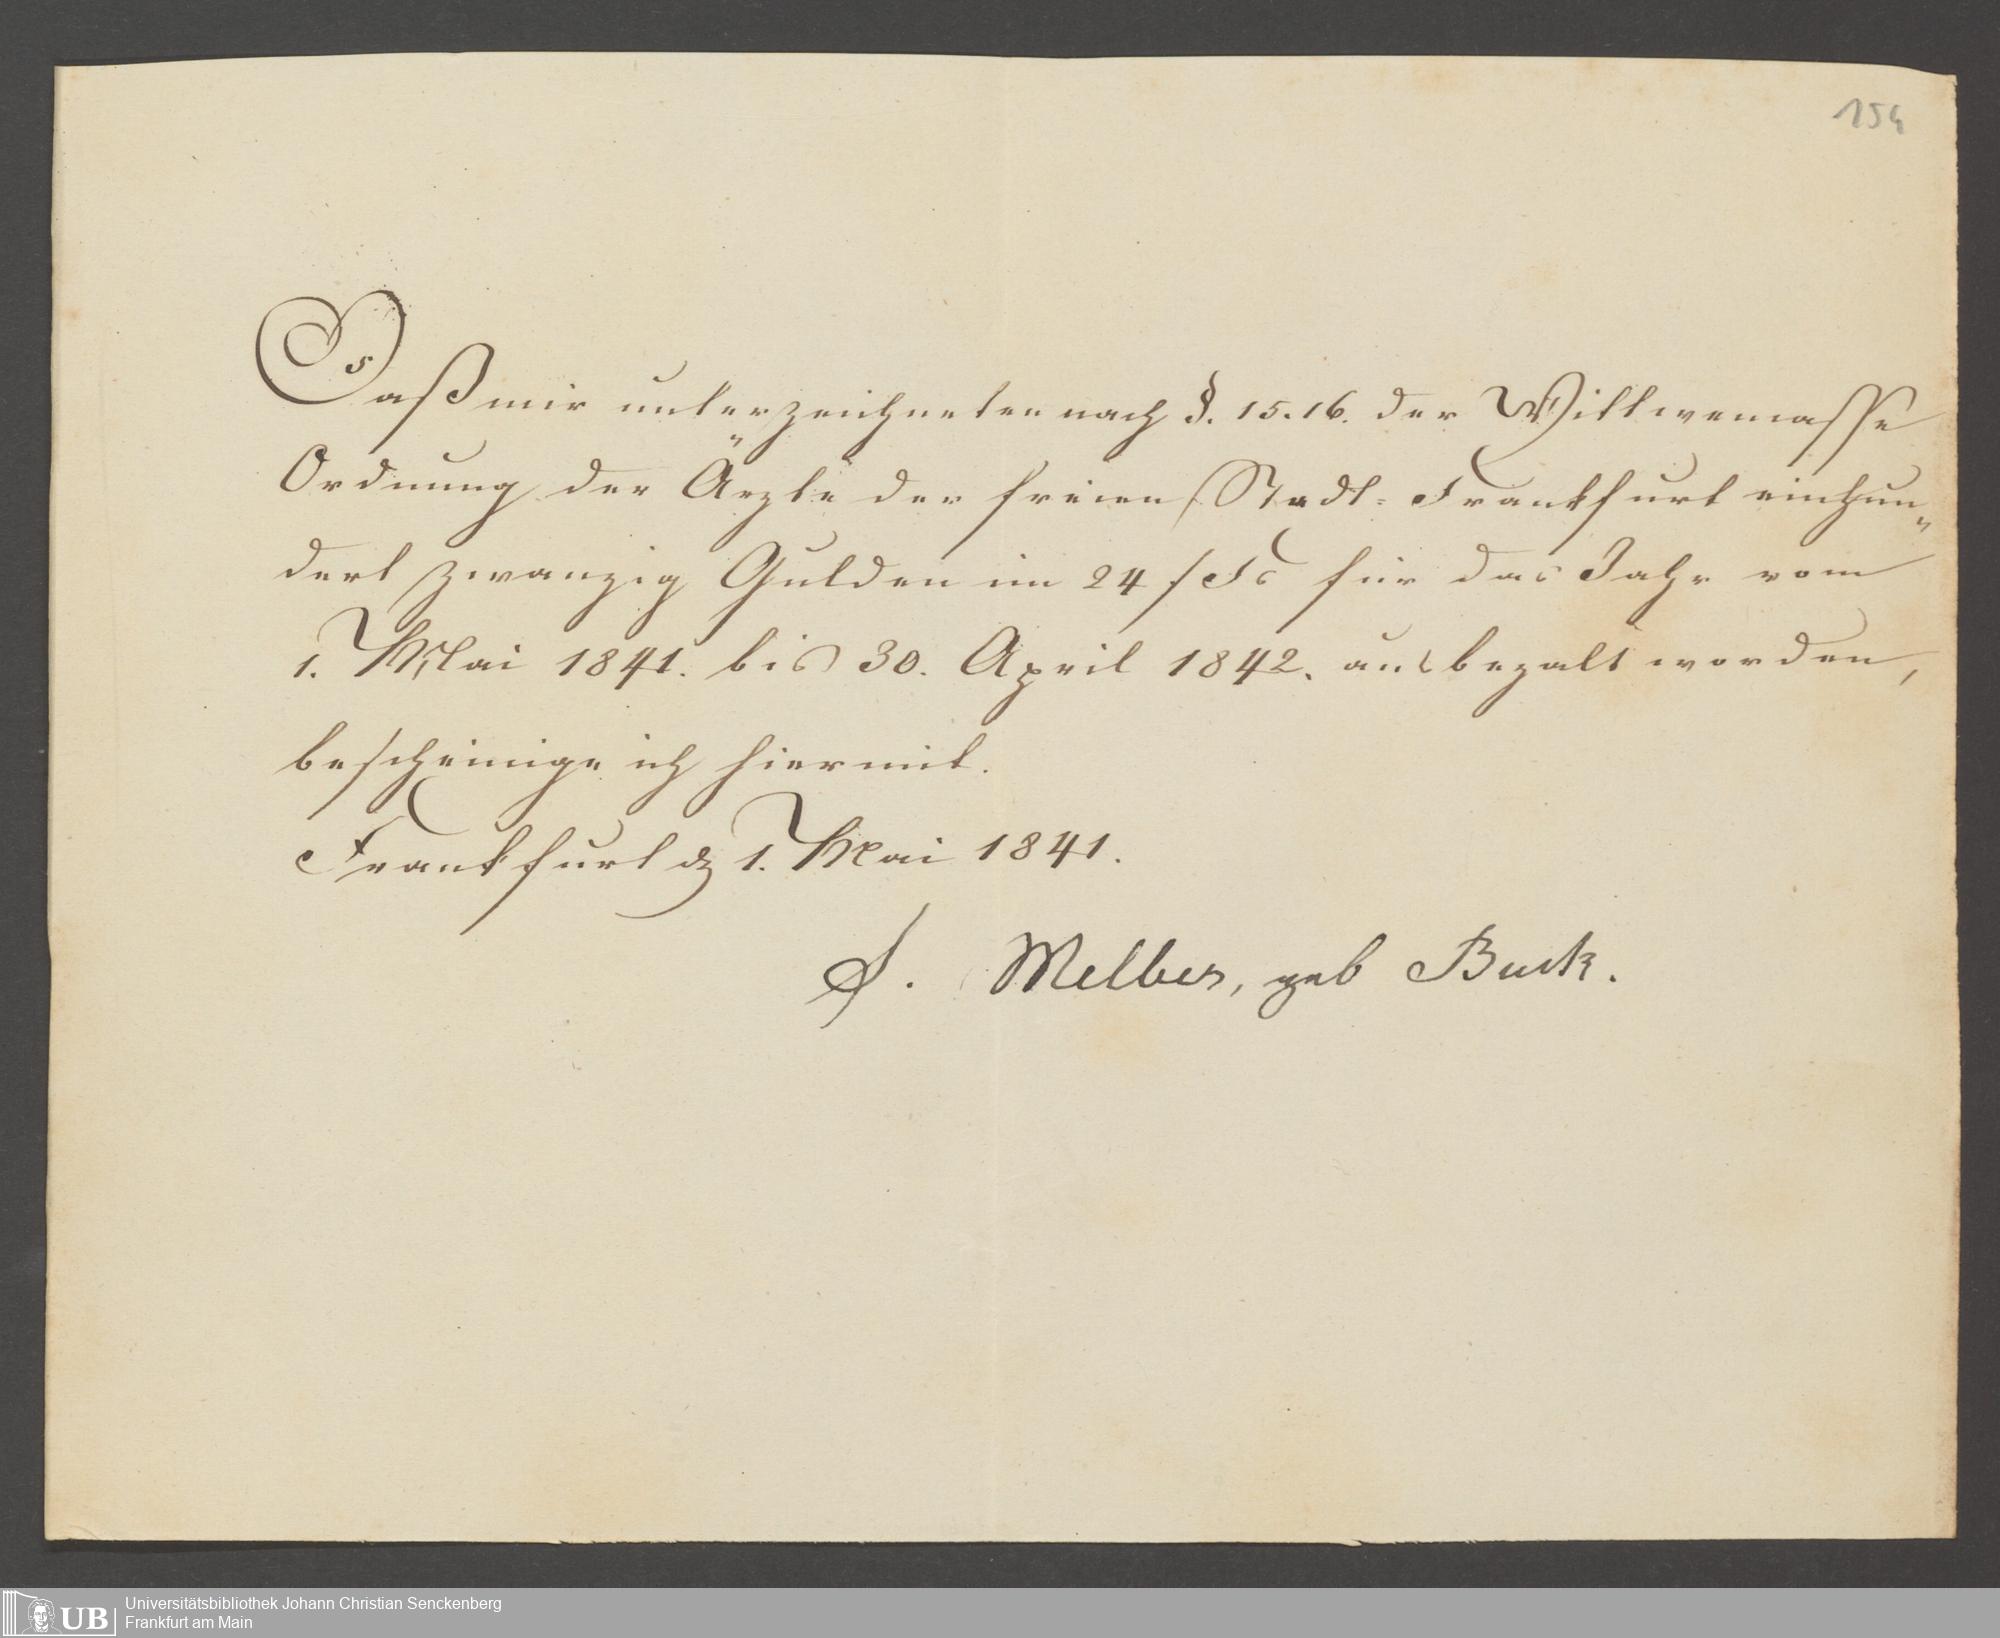 154
Daß mir unterzeichneten nach §. 15.16. der Wittwemasse
Ordnung der Ärzte der freien Stadt= Frankfurt einhun„
dert zwanzig Gulden im 24 f Fs für das Jahr vom
1. Mai 1841. bis 30. April 1842. ausbezalt worden,
bescheinige ich hiermit.
Frankfurt 1. Mai 1841.
S. Melber, geb Buck.
UB
Universitätsbibliothek Johann Christian Senckenberg
Frankfurt am Main